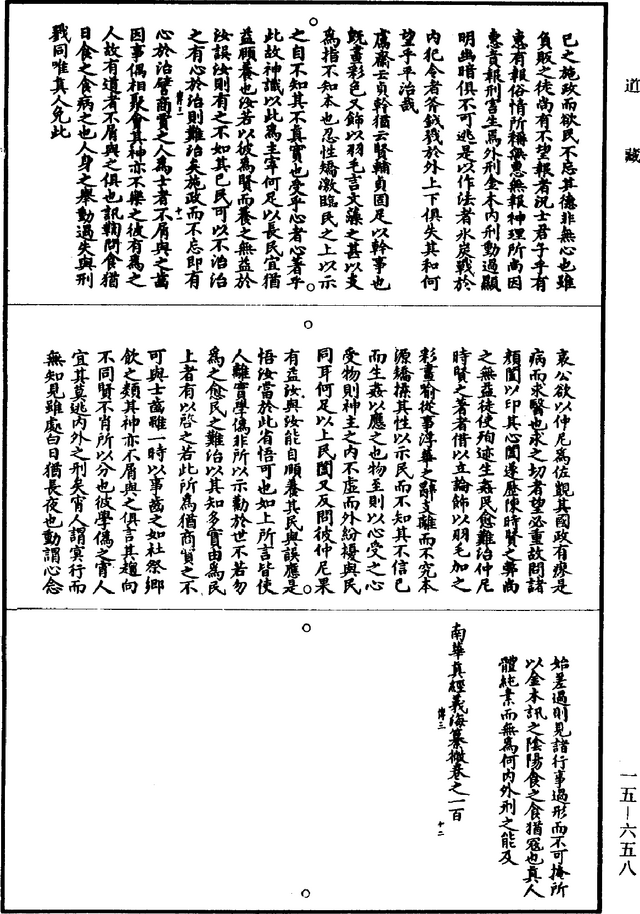 道藏
已之施政而欲民不忘其德非無心也雖
負販之徒尚有不望報者況士君子乎有
惠有報俗情所稱無惠無報神理所尚因
惠責報刑害生焉外刑金木內刑動過顯
明幽暗俱不可逃是以作法者氷炭戰於
內犯令者斧鉞戮於外上下俱失其和何
望乎平治哉
鬳齋云貞幹猶云賢輔貞固足以幹事也
既畫彩色又飾以羽毛言文藻之甚以支
為指不知本也忍性矯激臨民之上以示
之自不知其不真實也受乎心者心著乎
此故神識以此為主宰何足以長民宜猶
益頤養也汝若以彼為賢而養之無益於
汝誤汝則有之不如其已民可以不治治
之有心於治則難治矣施政而不忘即有
傳三 十一
心於治譬商賈之人為士者不屑與之齒
因事偶相聚會其神亦不樂之彼有為之
人故有道者不屑與之俱也訊鞫問食猶
日食之食病之也人身之舉動過失與刑
戮同唯真人免此
哀公欲以仲尼為佐觀其國政有瘳是
病而求醫也求之切者望必重故問諸
顏闔以印其心闔遂歷陳時賢之弊尚
之無益徒使殉迹生姦民愈難治仲尼
時賢之著者借以立論飾以羽毛加之
彩畫喻從事淳華之辭支離而不究本
源矯揉其性以示民而不知其不信已
而生姦以應之也物至則以心受之心
受物則神主之內不虛而外紛擾與民
同耳何足以上民闔又反問彼仲尼果
有益汝與汝能自頤養其民與誤應是
悟汝當於此省悟可也如上所言皆使
人離實學偽非所以示勸於世不若勿
為之愈民之難治以其知多實由為民
上者有以啓之若此所為猶商賈之不
可與士齒雖一時以事齒之如社祭鄉
飲之類其神亦不屑與之俱言其趨向
不同賢不肖所以分也彼學偽之宵人
宜其莫逃內外之刑矣宵人謂冥行而
無知見雖處白日猶長夜也動謂心念
始差過則見諸行事過形而不可掩所
以金木訊之陰陽食之食猶寇也真人
體純素而無為何內外刑之能及
南華真經義海纂微卷之一百
傳三 十二
一五—六五八